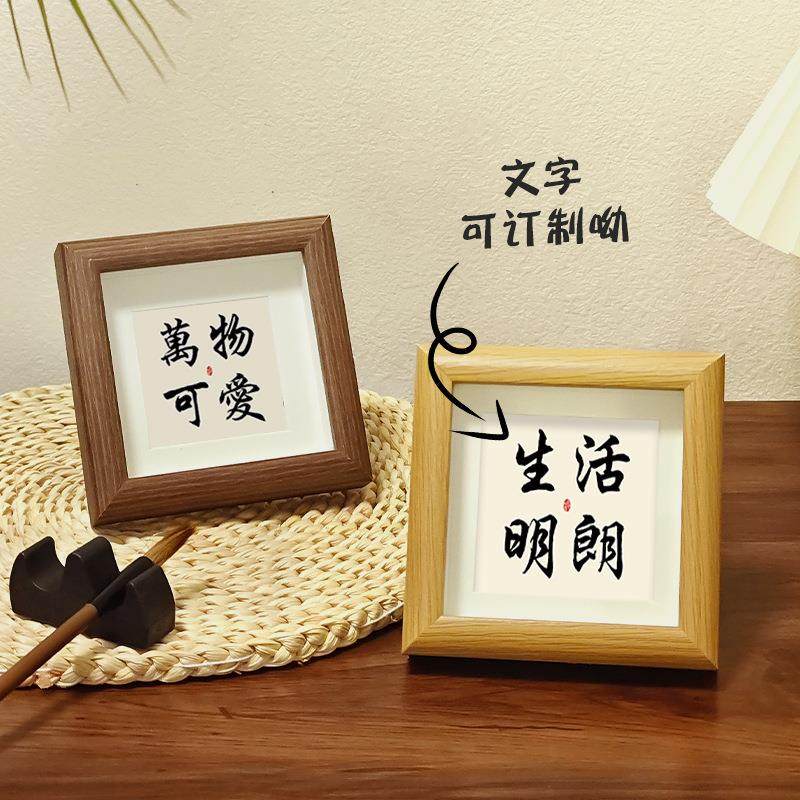 文字
可订制呦
萬物
可愛
生活
明朗